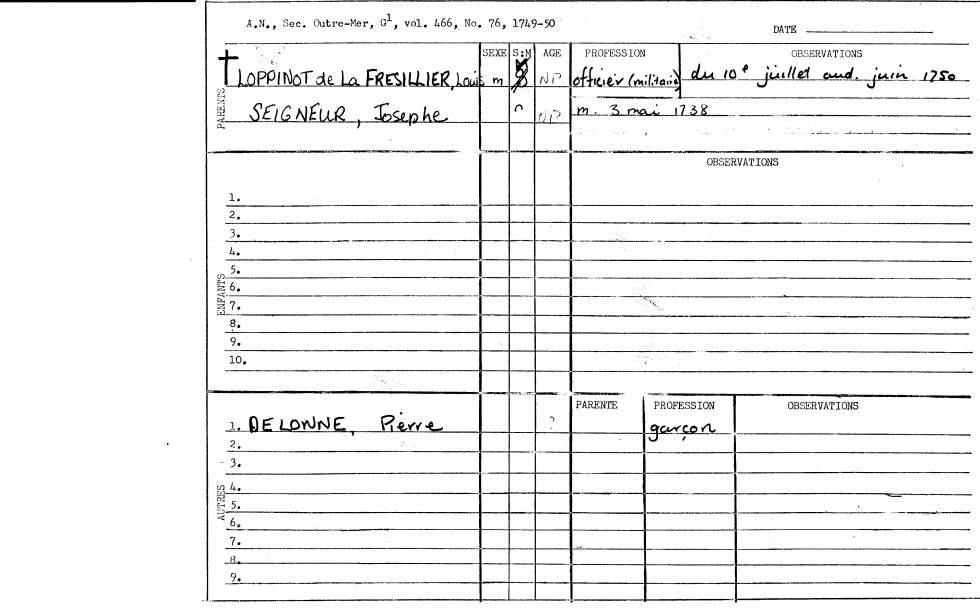 A.N., Sec. Outre-Mer, G1, vol. 466, No. 76, 1749-50
DATE
SEXE S:M AGE PROFESSION OBSERVATIONS
PARENTS
LOPPINOT de La FRESILLIER, Louis m NP officier (militaire) du 10e juillet aud. juin 1750
SEIGNEUR, Josephe NP m. 3 mai 1738
OBSERVATIONS
ENFANTS
1.
2.
3.
4.
5.
6.
7.
8.
9.
10.
PARENTE PROFESSION OBSERVATIONS
AUTRES
1. DELONNE, Pierre ? garçon
2.
3.
4.
5.
6.
7.
8.
9.